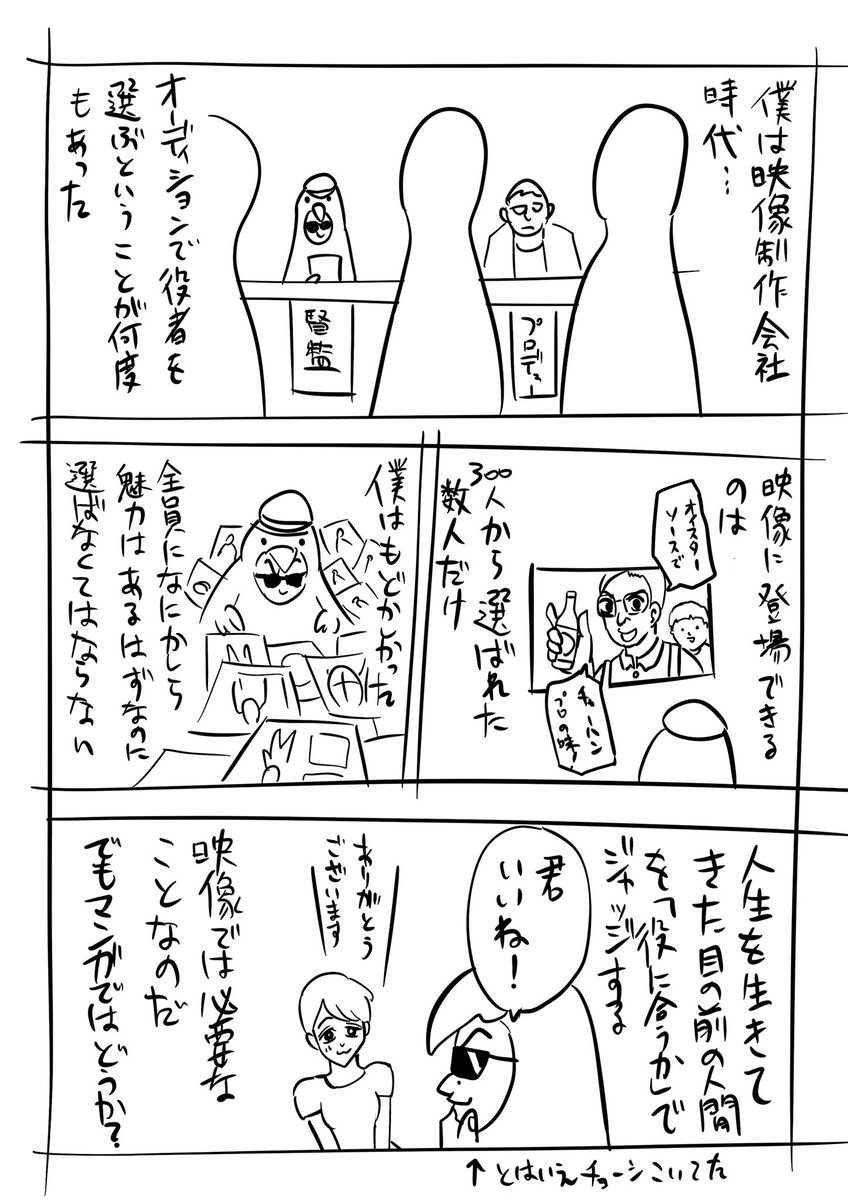 僕は映像制作会社
時代…
オーディションで役者を
選ぶということが何度
もあった
プロデュー
監督
映像に登場できる
のは
オイスター
ソースで
チャーハン
プロの味!
300人から選ばれた
数人だけ
僕はもどかしかった
全員になにかしら
魅力はあるはずなのに
選ばなくてはならない
人生を生きて
きた目の前の人間
を「役に合うか」で
ジャッジする
君
いいね!
ありがとう
ございます
映像では必要な
ことなのだ
でもマンガではどうか?
↑とはいえチョーシこいてた